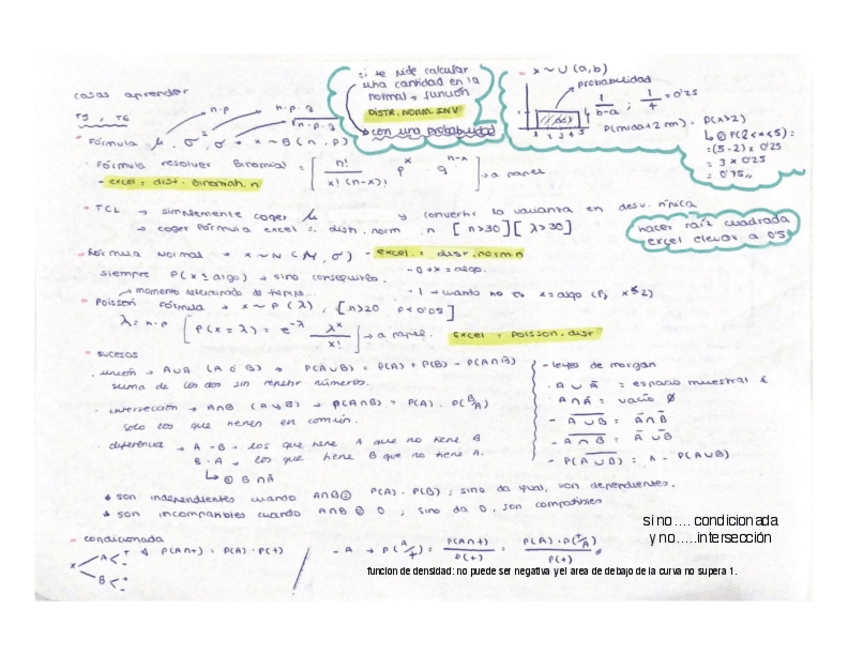 cosas aprender
T5, T6
si te pide calcular
una cantidad en la
normal → función
DISTR. NORM. INV
con una probabilidad
x ~ U (a,b)
probabilidad
1/b-a ; 1/4 = 0'25
1 2 3 4 5
P(x>2)
P(2<x<5) =
= (5-2) x 0'25
= 3 x 0'25
= 0'75
n·p
n·p·q
√n·p·q
Fórmula μ, σ², σ → x ~ B (n, p)
Fórmula resolver Binomial = [ n! / x! (n-x)! p^x · q^n-x ] → a papel
- excel = dist. binomial.n
TCL → simplemente coger μ y convertir la varianza en desv. típica
→ coger fórmula excel = distr. norm. n [n>30] [λ>30]
hacer raíz cuadrada
excel elevar a 0'5
Fórmula normal → x ~ N (μ, σ) - excel = distr.norm.n
siempre P(x ≤ algo) → sino conseguirlo.
- 0 → x = algo.
→ momento determinado de tiempo...
- 1 → cuando no es x = algo (Pj x≤2)
Poisson fórmula → x ~ P (λ), [n>20 p<0'05]
λ = n·p [P(x = λ) = e^-λ λ^x / x!] → a papel. excel = Poisson.dist
sucesos
unión → A∪B (A ó B) → P(A∪B) = P(A) + P(B) - P(A∩B)
suma de los dos sin repetir números.
intersección → A∩B (A y B) → P(A∩B) = P(A) · P(B/A)
solo los que tienen en común.
diferencia → A - B → los que tiene A que no tiene B
B - A → los que tiene B que no tiene A.
B ∩ Ā
- leyes de morgan
A ∪ Ā = espacio muestral E
A ∩ Ā = vacío Ø
- A̅ ̅∪̅ ̅B̅ = Ā ∩ B̄
- A̅ ̅∩̅ ̅B̅ = Ā ∪ B̄
- P(A̅ ̅∪̅ ̅B̅) = 1 - P(A∪B)
* son independientes cuando A∩B = P(A) · P(B) ; sino da igual, son dependientes.
* son incompatibles cuando A∩B = 0 ; sino da 0, son compatibles
si no.... condicionada
y no.....intersección
condicionada
x A + - P(A∩+) = P(A) · P(+)
B + -
- A → P(A/+) = P(A∩+) / P(+) = P(A) · P(+/A) / P(+)
funcion de densidad: no puede ser negativa y el area de debajo de la curva no supera 1.